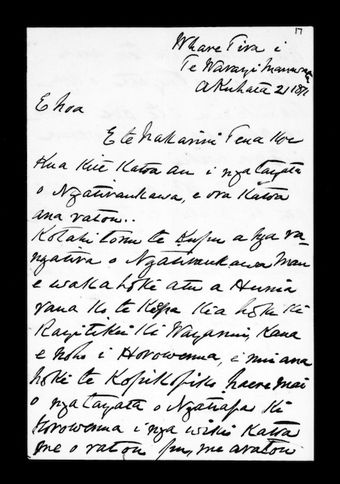 17
Whare Tira i
Te Warayi Manawa
Akuhata 21
E hoa
E te Makarini Tena koe
Kua kite katoa au i nga tayata
o Ngatiraukawa, e ora katoa
ana ratou..
Kotahi tonu te kupu a nga ra-
ngatira o Ngatiraukawa
e waka hoki atu a Hunia
rana ko te Keepa kia hoki ki
Rayitikei ki Wayanui, kaua
e noho i Horowenua, e mui ana
hoki te Kopikopiko haere mai
o nga tayata o Ngatiapa ki
Horowenua i nga wiki katoa
me o ratou pu, me a ratou